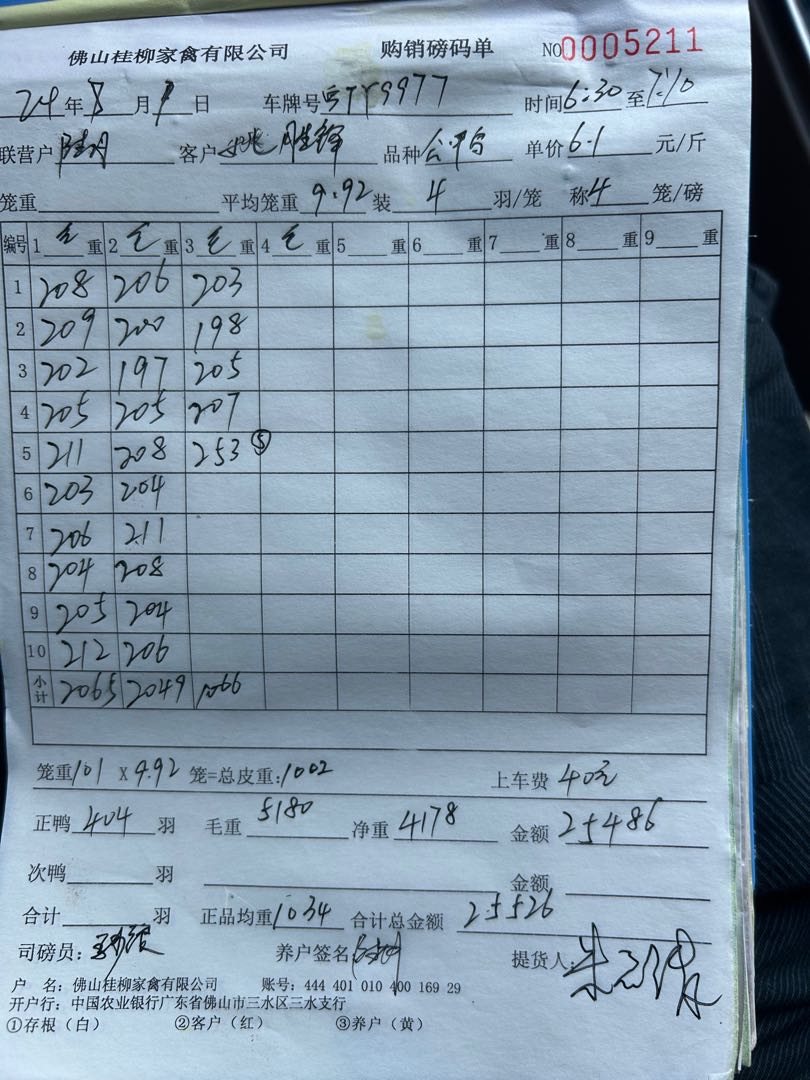 佛山桂柳家禽有限公司 购销磅码单 NO0005211
24年8月1日 车牌号 TY9977 时间6:30至7:10
联营户 客户 胜锋 品种 单价6.1元/斤
笼重 平均笼重9.92装4羽/笼 称4笼/磅
编号 1毛重 2毛重 3毛重 4毛重 5重 6重 7重 8重 9重
1 208 206 203
2 209 200 198
3 202 197 205
4 205 205 207
5 211 208 253 ⑤
6 203 204
7 206 211
8 204 208
9 205 204
10 212 206
小计 2065 2049 1066
笼重101 X 9.92 笼=总皮重:1002 上车费 40元
正鸭404羽 毛重5180 净重4178 金额25486
次鸭 羽 金额
合计 羽 正品均重1034 合计总金额25526
司磅员: 养户签名 提货人:
户 名: 佛山桂柳家禽有限公司 账号: 444 401 010 400 169 29
开户行: 中国农业银行广东省佛山市三水区三水支行
①存根(白) ②客户(红) ③养户(黄)